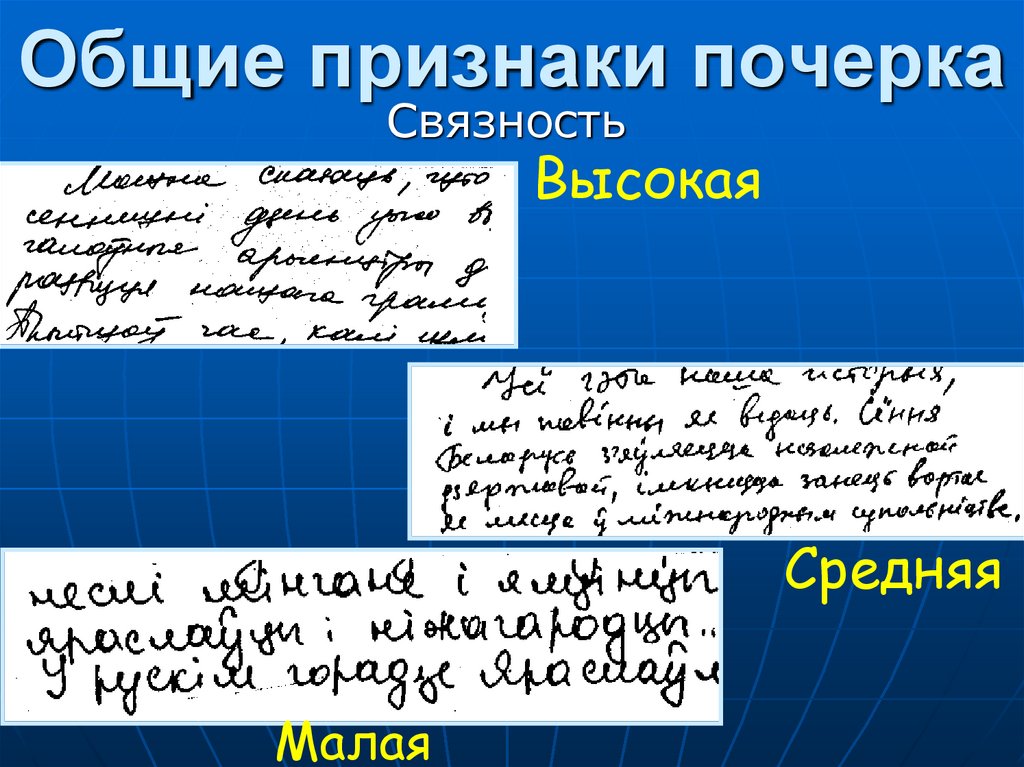 Общие признаки почерка
Связность
Высокая
Можна сказаць, што
сённяшні дзень
галоўныя арыенціры д
развіцця нашага грама
час, калі
Усё гэта наша гісторыя,
і мы павінны яе ведаць. Сёння
Беларусь з'яўляецца незалежнай
дзяржавай, імкнецца заняць вартае
яе месца ў міжнародным супольніцтве.
Средняя
неслі мінгане і
яраслаўцы і ніжагародцы..
У рускім горадзе Яраслаўл
Малая